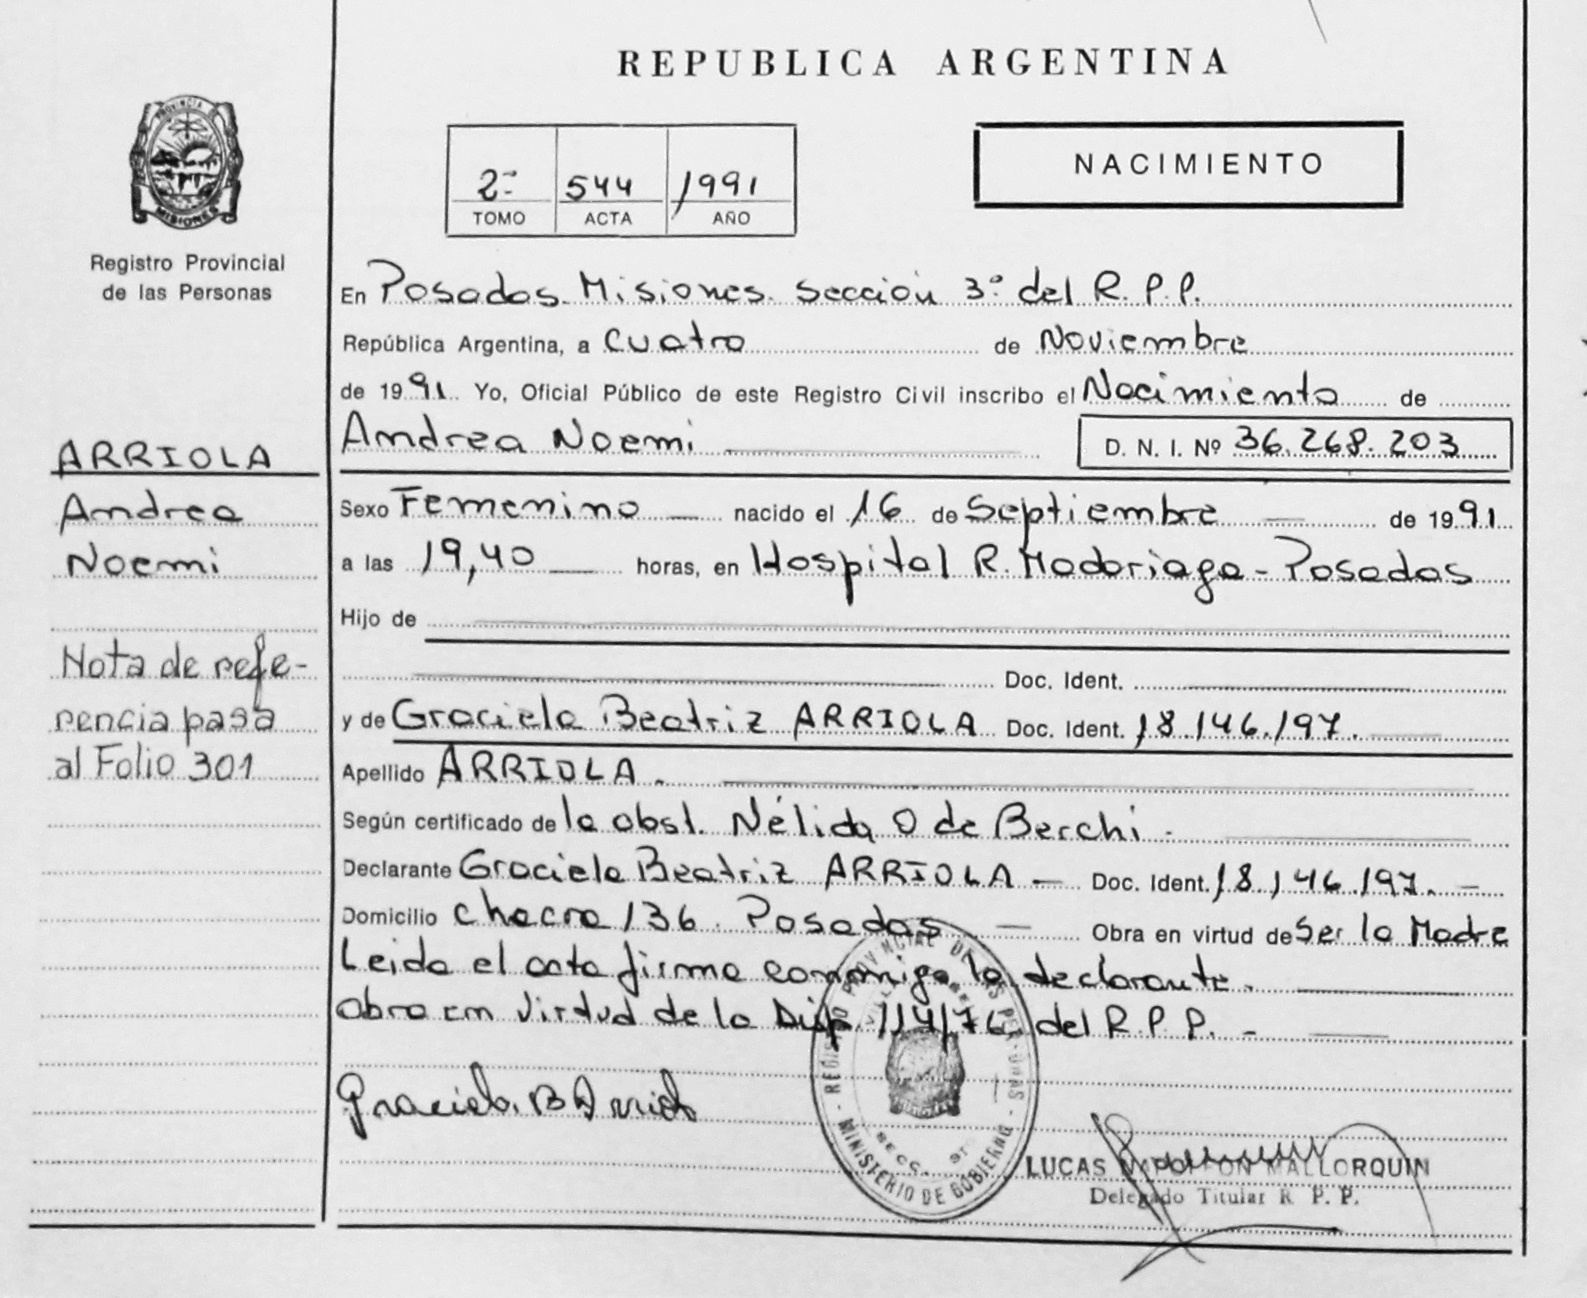 REPUBLICA ARGENTINA
PROVINCIA
MISIONES
Registro Provincial
de las Personas
2º 544 1991
TOMO ACTA AÑO
NACIMIENTO
En Posadas. Misiones. Sección 3º del R. P. P.
República Argentina, a cuatro de Noviembre
de 1991 Yo, Oficial Público de este Registro Civil inscribo el Nacimiento de
Andrea Noemi D. N. I. Nº 36.268.203
Sexo Femenino nacido el 16 de Septiembre de 1991
a las 19,40 horas, en Hospital R. Madariaga - Posadas
Hijo de
Doc. Ident.
y de Graciela Beatriz ARRIOLA Doc. Ident. 18.146.197.
Apellido ARRIOLA.
Según certificado de la obst. Nélida O de Berchi.
Declarante Graciela Beatriz ARRIOLA — Doc. Ident. 18.146.197. —
Domicilio chacra 136. Posadas — Obra en virtud de Ser la Madre
Leida el acta firma conmigo la declarante.
Obra en virtud de la Disp. 114/76 del R. P. P. -
Graciela B Arriola
ARRIOLA
Andrea
Noemi
Nota de refe-
rencia pasa
al Folio 301
REGISTRO PROVINCIAL DE LAS PERSONAS
MINISTERIO DE GOBIERNO
SECC.
LUCAS NAPOLEON MALLORQUIN
Delegado Titular R. P. P.